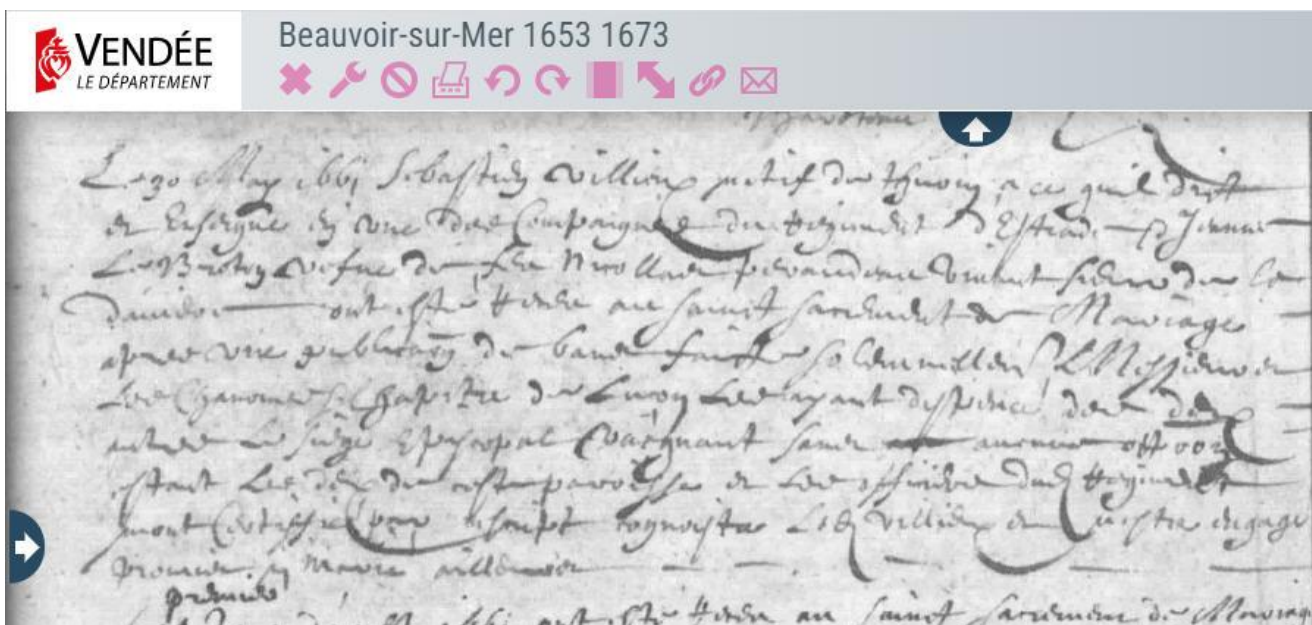 VENDÉE
LE DÉPARTEMENT
Beauvoir-sur-Mer 1653 1673
Le 30 May 1661 Sebastien Villieux natif de a ce quil dist
et Enseigne en une des Compaignies du Regiment d'Estrade & Jeanne
Le Breton vefve de feu Nicollas vivant sieur de la
ont esté Receu au sainct sacrement de Mariage
apres une publication de bans faicte solemnellem Messieurs
les Chanoines & Chapitre de Luçon les ayant dispencé des deux
autres le siege Episcopal vacquant sans aucune opp
estant de ceste paroisse et les officiers dud Regiment
mont certiffié par escript cognoistre led Villieux et n'estre engagé
promis ny Marié ailleurs
premier
esté Receu au sainct sacrement de Mariage